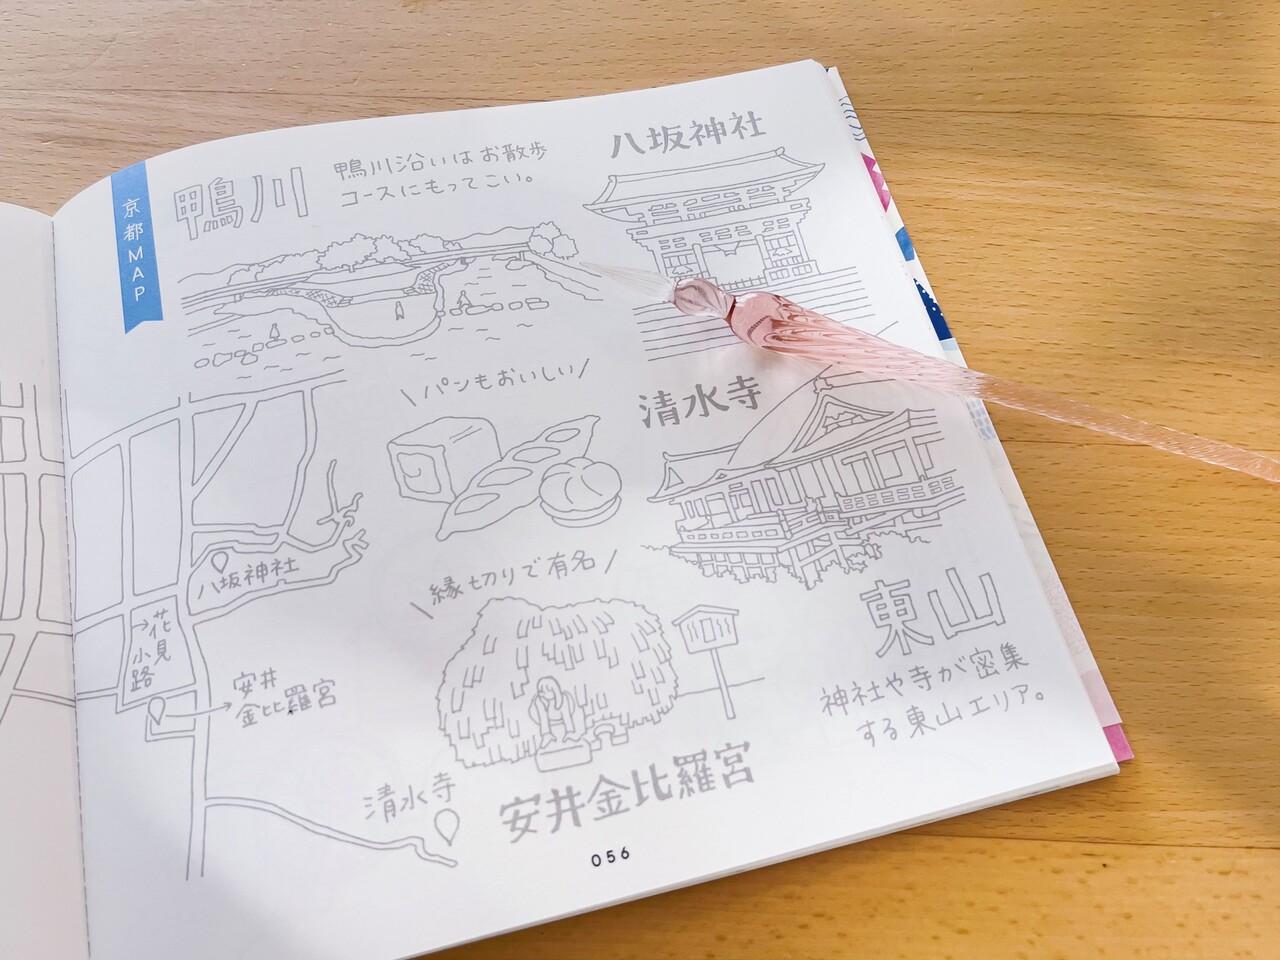 京都MAP
鴨川
鴨川沿いはお散歩
コースにもってこい。
八坂神社
パンもおいしい
清水寺
縁切りで有名
八坂神社
→花見
小路
安井
金比羅宮
東山
神社や寺が密集
する東山エリア。
清水寺
安井金比羅宮
056